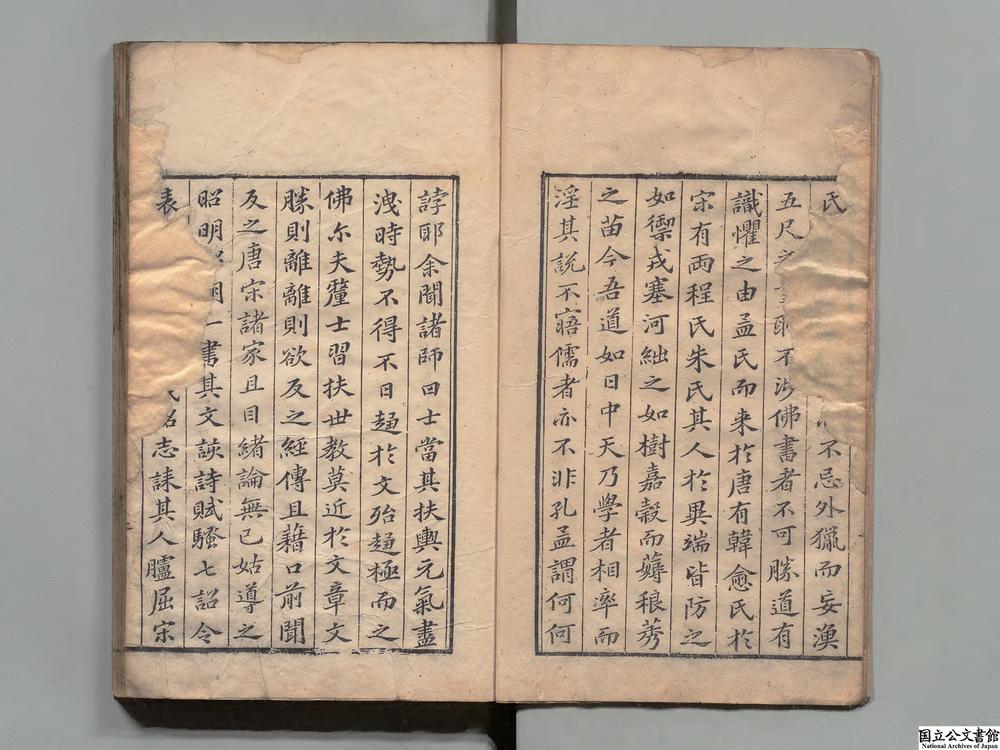 氏 不忌外獵而妄漁
五尺 耶不涉佛書者不可勝道有
識懼之由孟氏而来於唐有韓愈氏於
宋有兩程氏朱氏其人於異端皆防之
如禦戎塞河絀之如樹嘉穀而薅稂莠
之苗今吾道如日中天乃學者相率而
淫其說不寤儒者亦不非孔孟謂何何
誖耶余聞諸師曰士當其扶輿元氣盡
洩時勢不得不日趨於文殆趨極而之
佛尓夫釐士習扶世教莫近於文章文
勝則離離則欲反之經傳且藉口前聞
反之唐宋諸家且目緒論無已姑導之
昭明 一書其文詼詩賦騷七詔令
表 志誄其人臚屈宋
国立公文書館
National Archives of Japan